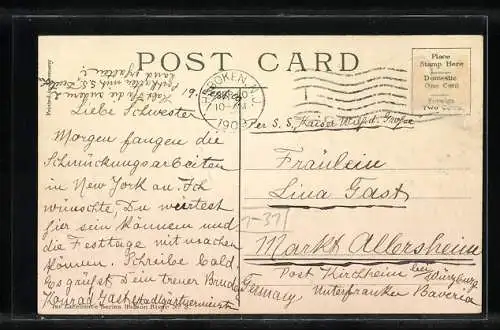 POST CARD
Place
Stamp Here
Domestic
One Card
Foreign
Two Cents
HOBOKEN, N.J.
10-AM
190
Per S.S. Kaiser Wilhd. Große
Liebe Schwester
Morgen fangen die
Schmückungsarbeiten
in New York an. Ich
wünschte, Du würdest
hier sein können und
die Festtage mitmachen
können. Schreibe bald.
Es grüßt Dein treuer Bruder
Konrad Gast Stadtgärtgermeistr
Fräulein
Lina Gast
T-37
Markt Allersheim
Post Kirchheim bei Würzburg
Germany, Unterfranken Bavaria
Series Hudson River No.